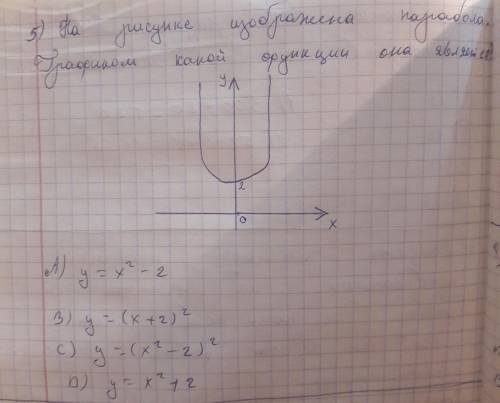 5) На рисунке изображена парабола.
Графиком какой функции она является
y
2
0
x
A) y = x² - 2
B) y = (x + 2)²
C) y = (x² - 2)²
D) y = x² + 2